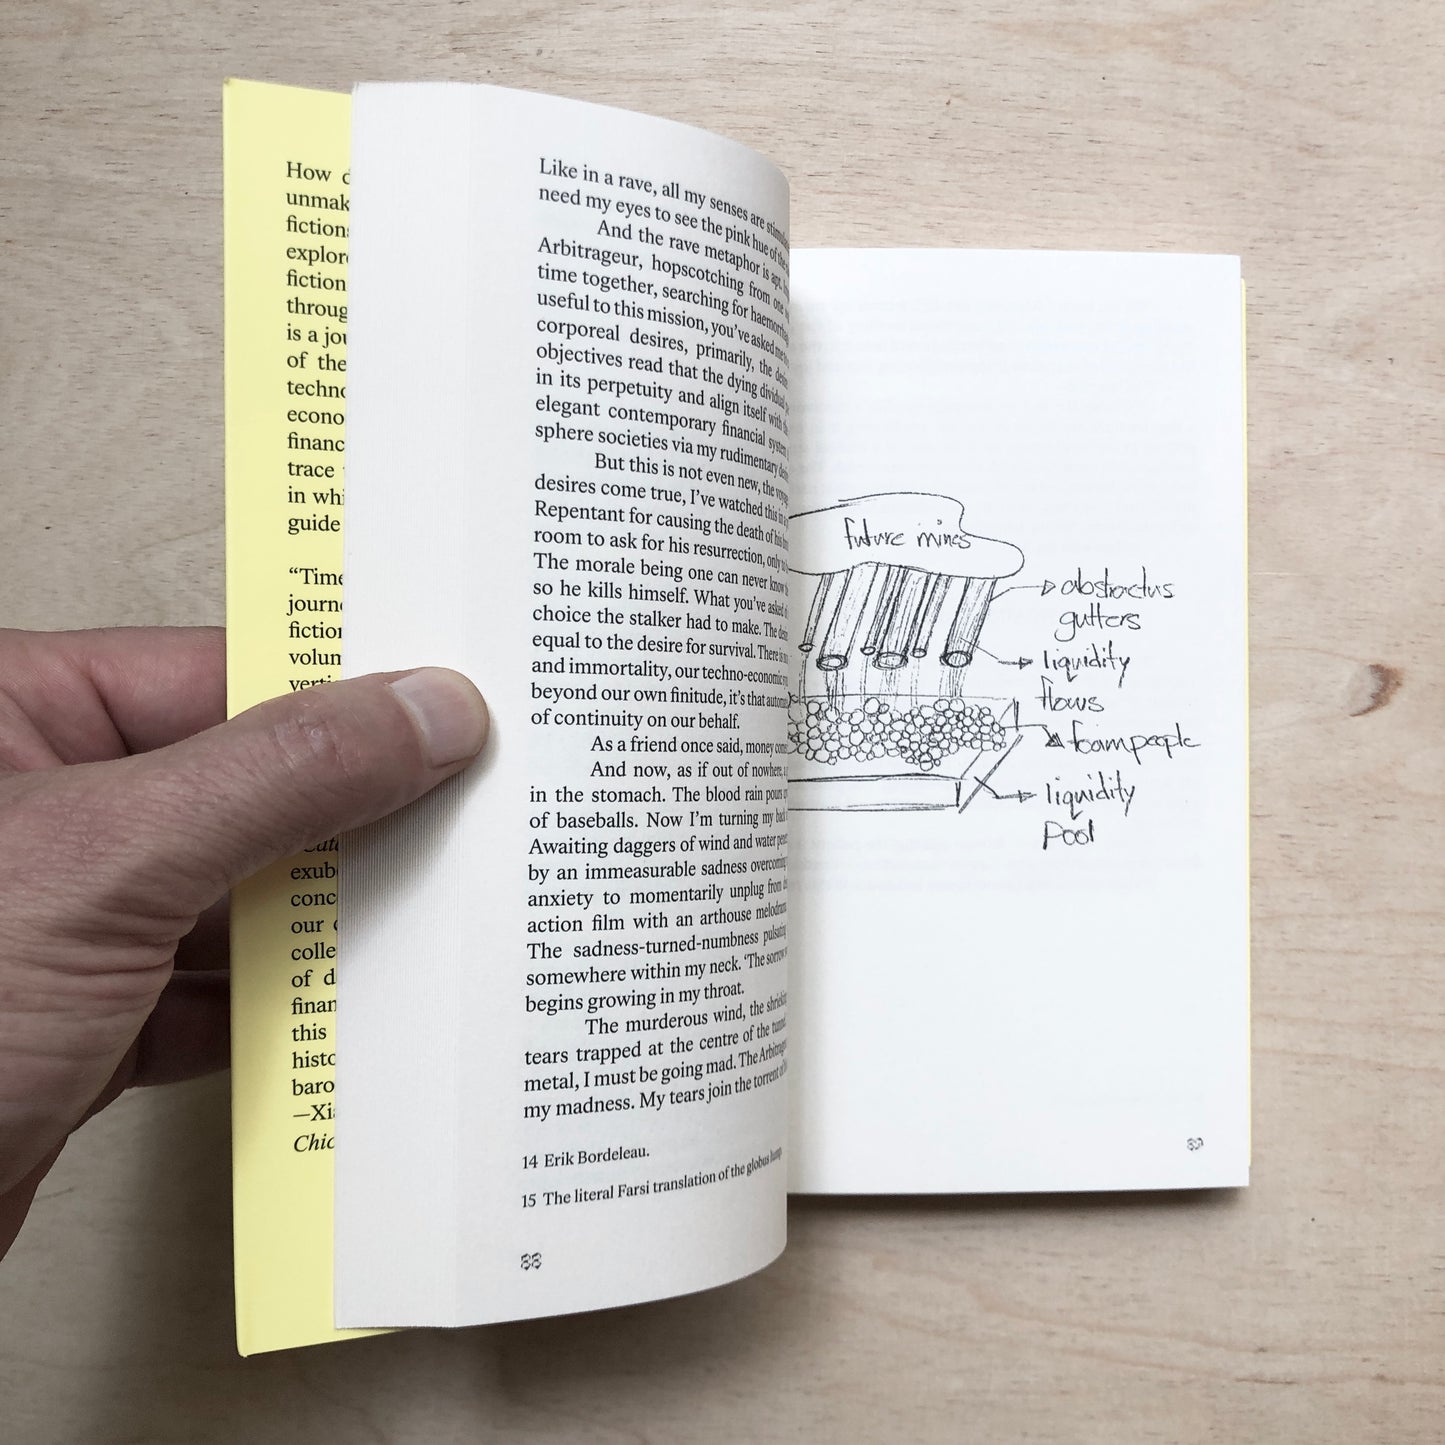 How
unmak
fictions
explore
fiction
throug
is a jou
of the
techno
econo
financ
trace
in whi
guide
“Time
journe
fiction
volum
verti
exub
conc
our
colle
of d
finan
this
histo
baro
—Xia
Chic
Like in a rave, all my senses are
need my eyes to see the pink hue of the
And the rave metaphor is apt.
Arbitrageur, hopscotching from one
time together, searching for
useful to this mission, you’ve asked me
corporeal desires, primarily, the
objectives read that the dying dividual
in its perpetuity and align itself with
elegant contemporary financial system
sphere societies via my rudimentary
But this is not even new, the
desires come true, I’ve watched this in
Repentant for causing the death of his
room to ask for his resurrection, only
The morale being one can never know
so he kills himself. What you’ve asked
choice the stalker had to make. The
equal to the desire for survival. There is
and immortality, our techno-economic
beyond our own finitude, it’s that
of continuity on our behalf.
As a friend once said, money
And now, as if out of nowhere,
in the stomach. The blood rain pours
of baseballs. Now I’m turning my back
Awaiting daggers of wind and water
by an immeasurable sadness overcoming
anxiety to momentarily unplug from
action film with an arthouse
The sadness-turned-numbness pulsating
somewhere within my neck. ‘The sorrow
begins growing in my throat.
The murderous wind, the shrieking
tears trapped at the centre of the tunnel,
metal, I must be going mad. The
my madness. My tears join the torrent of
14 Erik Bordeleau.
15 The literal Farsi translation of the globus
88
future mines
abstractus
gutters
liquidity
flows
foampeople
liquidity
pool
89